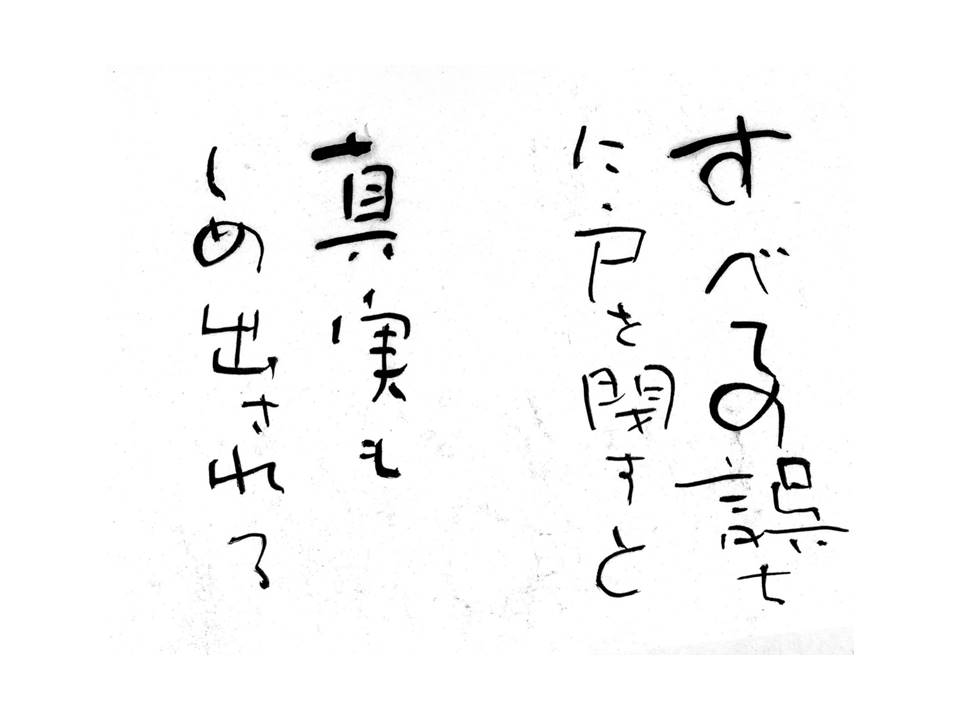 すべての誤ち
に戸を閉すと
真実も
しめ出される